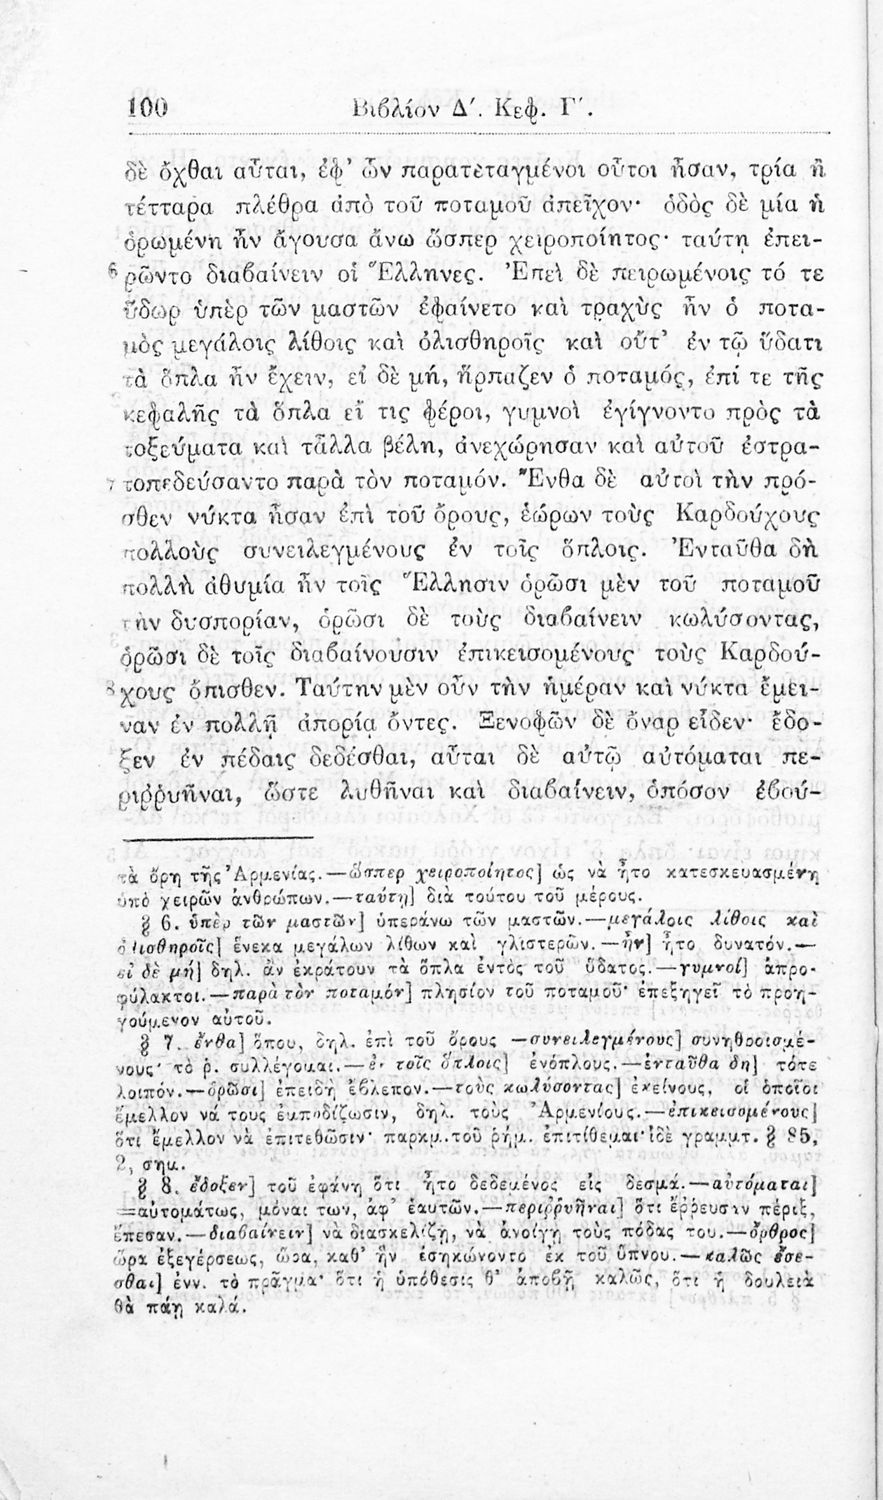 100 Βιβλίον Δ΄. Κεφ. Γ΄.
δὲ ὄχθαι αὗται, ἐφ’ ὧν παρατεταγμένοι οὗτοι ἦσαν, τρία ἢ
τέτταρα πλέθρα ἀπὸ τοῦ ποταμοῦ ἀπεῖχον· ὁδὸς δὲ μία ἡ
ὁρωμένη ἦν ἄγουσα ἄνω ὥσπερ χειροποίητος· ταύτῃ ἐπει-
6 ρῶντο διαβαίνειν οἱ Ἕλληνες. Ἐπεὶ δὲ πειρωμένοις τό τε
ὕδωρ ὑπὲρ τῶν μαστῶν ἐφαίνετο καὶ τραχὺς ἦν ὁ ποτα-
μὸς μεγάλοις λίθοις καὶ ὀλισθηροῖς καὶ οὔτ’ ἐν τῷ ὕδατι
τὰ ὅπλα ἦν ἔχειν, εἰ δὲ μή, ἥρπαζεν ὁ ποταμός, ἐπί τε τῆς
κεφαλῆς τὰ ὅπλα εἴ τις φέροι, γυμνοὶ ἐγίγνοντο πρὸς τὰ
τοξεύματα καὶ τἆλλα βέλη, ἀνεχώρησαν καὶ αὐτοῦ ἐστρα-
7 τοπεδεύσαντο παρὰ τὸν ποταμόν. Ἔνθα δὲ αὐτοὶ τὴν πρό-
σθεν νύκτα ἦσαν ἐπὶ τοῦ ὄρους, ἑώρων τοὺς Καρδούχους
πολλοὺς συνειλεγμένους ἐν τοῖς ὅπλοις. Ἐνταῦθα δὴ
πολλὴ ἀθυμία ἦν τοῖς Ἕλλησιν ὁρῶσι μὲν τοῦ ποταμοῦ
τὴν δυσπορίαν, ὁρῶσι δὲ τοὺς διαβαίνειν κωλύσοντας,
ὁρῶσι δὲ τοῖς διαβαίνουσιν ἐπικεισομένους τοὺς Καρδού-
8 χους ὄπισθεν. Ταύτην μὲν οὖν τὴν ἡμέραν καὶ νύκτα ἔμει-
ναν ἐν πολλῇ ἀπορίᾳ ὄντες. Ξενοφῶν δὲ ὄναρ εἶδεν· ἔδο-
ξεν ἐν πέδαις δεδέσθαι, αὗται δὲ αὐτῷ αὐτόμαται πε-
ριῤῥυῆναι, ὥστε λυθῆναι καὶ διαβαίνειν, ὁπόσον ἐβού-
τὰ ὄρη τῆς Ἀρμενίας.—ὥσπερ χειροποίητος] ὡς νὰ ἦτο κατεσκευασμένη
ὑπὸ χειρῶν ἀνθρώπων.—ταύτῃ] διὰ τούτου τοῦ μέρους.
§ 6. ὑπὲρ τῶν μαστῶν] ὑπεράνω τῶν μαστῶν.—μεγάλοις λίθοις καὶ
ὀλισθηροῖς] ἕνεκα μεγάλων λίθων καὶ γλιστερῶν.—ἦν] ἦτο δυνατόν.—
εἰ δὲ μή] δηλ. ἂν ἐκράτουν τὰ ὅπλα ἐντὸς τοῦ ὕδατος.—γυμνοί] ἀπρο-
φύλακτοι.—παρὰ τὸν ποταμόν] πλησίον τοῦ ποταμοῦ· ἐπεξηγεῖ τὸ προη-
γούμενον αὐτοῦ.
§ 7. ἔνθα] ὅπου, δηλ. ἐπὶ τοῦ ὄρους —συνειλεγμένους] συνηθροισμέ-
νους· τὸ ῥ. συλλέγομαι.—ἐν τοῖς ὅπλοις] ἐνόπλους.—ἐνταῦθα δή] τότε
λοιπόν.—ὁρῶσι] ἐπειδὴ ἔβλεπον.—τοὺς κωλύσοντας] ἐκείνους, οἱ ὁποῖοι
ἔμελλον νά τους ἐμποδίζωσιν, δηλ. τοὺς Ἀρμενίους.—ἐπικεισομένους]
ὅτι ἔμελλον νὰ ἐπιτεθῶσιν· παρκμ. τοῦ ῥήμ. ἐπιτίθεμαι· ἰδὲ γραμμτ. § 85,
2, σημ.
§ 8. ἔδοξεν] τοῦ ἐφάνη ὅτι ἦτο δεδεμένος εἰς δεσμά.—αὐτόμαται]
=αὐτομάτως, μόναι των, ἀφ’ ἑαυτῶν.—περιῤῥυῆναι] ὅτι ἔῤῥευσαν πέριξ,
ἔπεσαν.—διαβαίνειν] νὰ διασκελίζῃ, νὰ ἀνοίγῃ τοὺς πόδας του.—ὄρθρος]
ὥρα ἐξεγέρσεως, ὥρα, καθ’ ἣν ἐσηκώνοντο ἐκ τοῦ ὕπνου.—καλῶς ἔσε-
σθαι] ἐνν. τὸ πρᾶγμα· ὅτι ἡ ὑπόθεσις θ’ ἀποβῇ καλῶς, ὅτι ἡ δουλειὰ
θὰ πάῃ καλά.